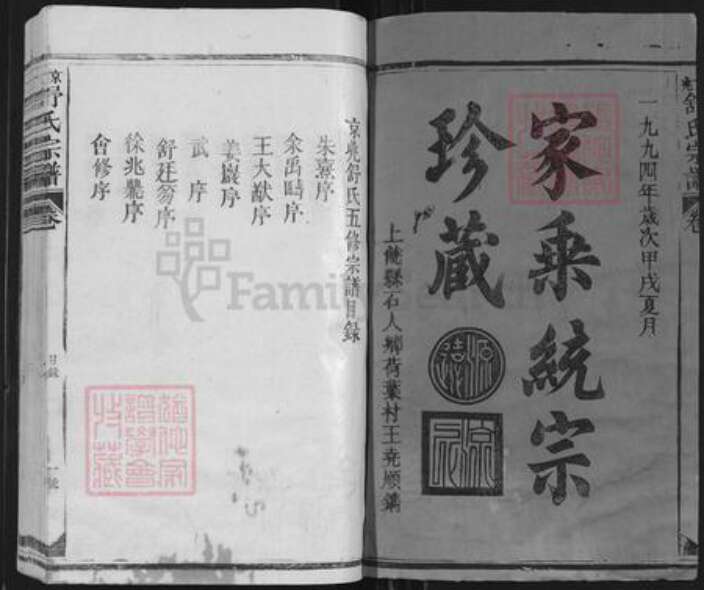 一九九四年歲次甲戌夏月
家乘統宗
珍藏
上饒縣石人鄉荷葉村王堯順鐫
舒氏宗譜
京兆舒氏五修宗譜目錄
朱熹序
余禹疇序
王大猷序
姜襄序
武序
舒廷翁序
徐兆麟序
會修序
京
舒氏宗譜
卷
目錄
一號